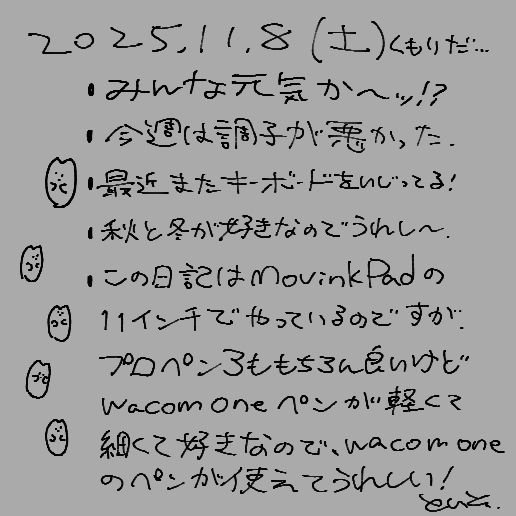 2025.11.8(土)くもりだ…
・みんな元気かへッ!?
・今週は調子が悪かった.
・最近またキーボードをいじってる!
・秋と冬が好きなのでうれし〜.
・この日記はMovinkPadの
11インチでやっているのですが.
プロペン3ももちろん良いけど
wacom Oneペンが軽くて
細くて好きなので、wacom one
のペンが使えてうれしい!